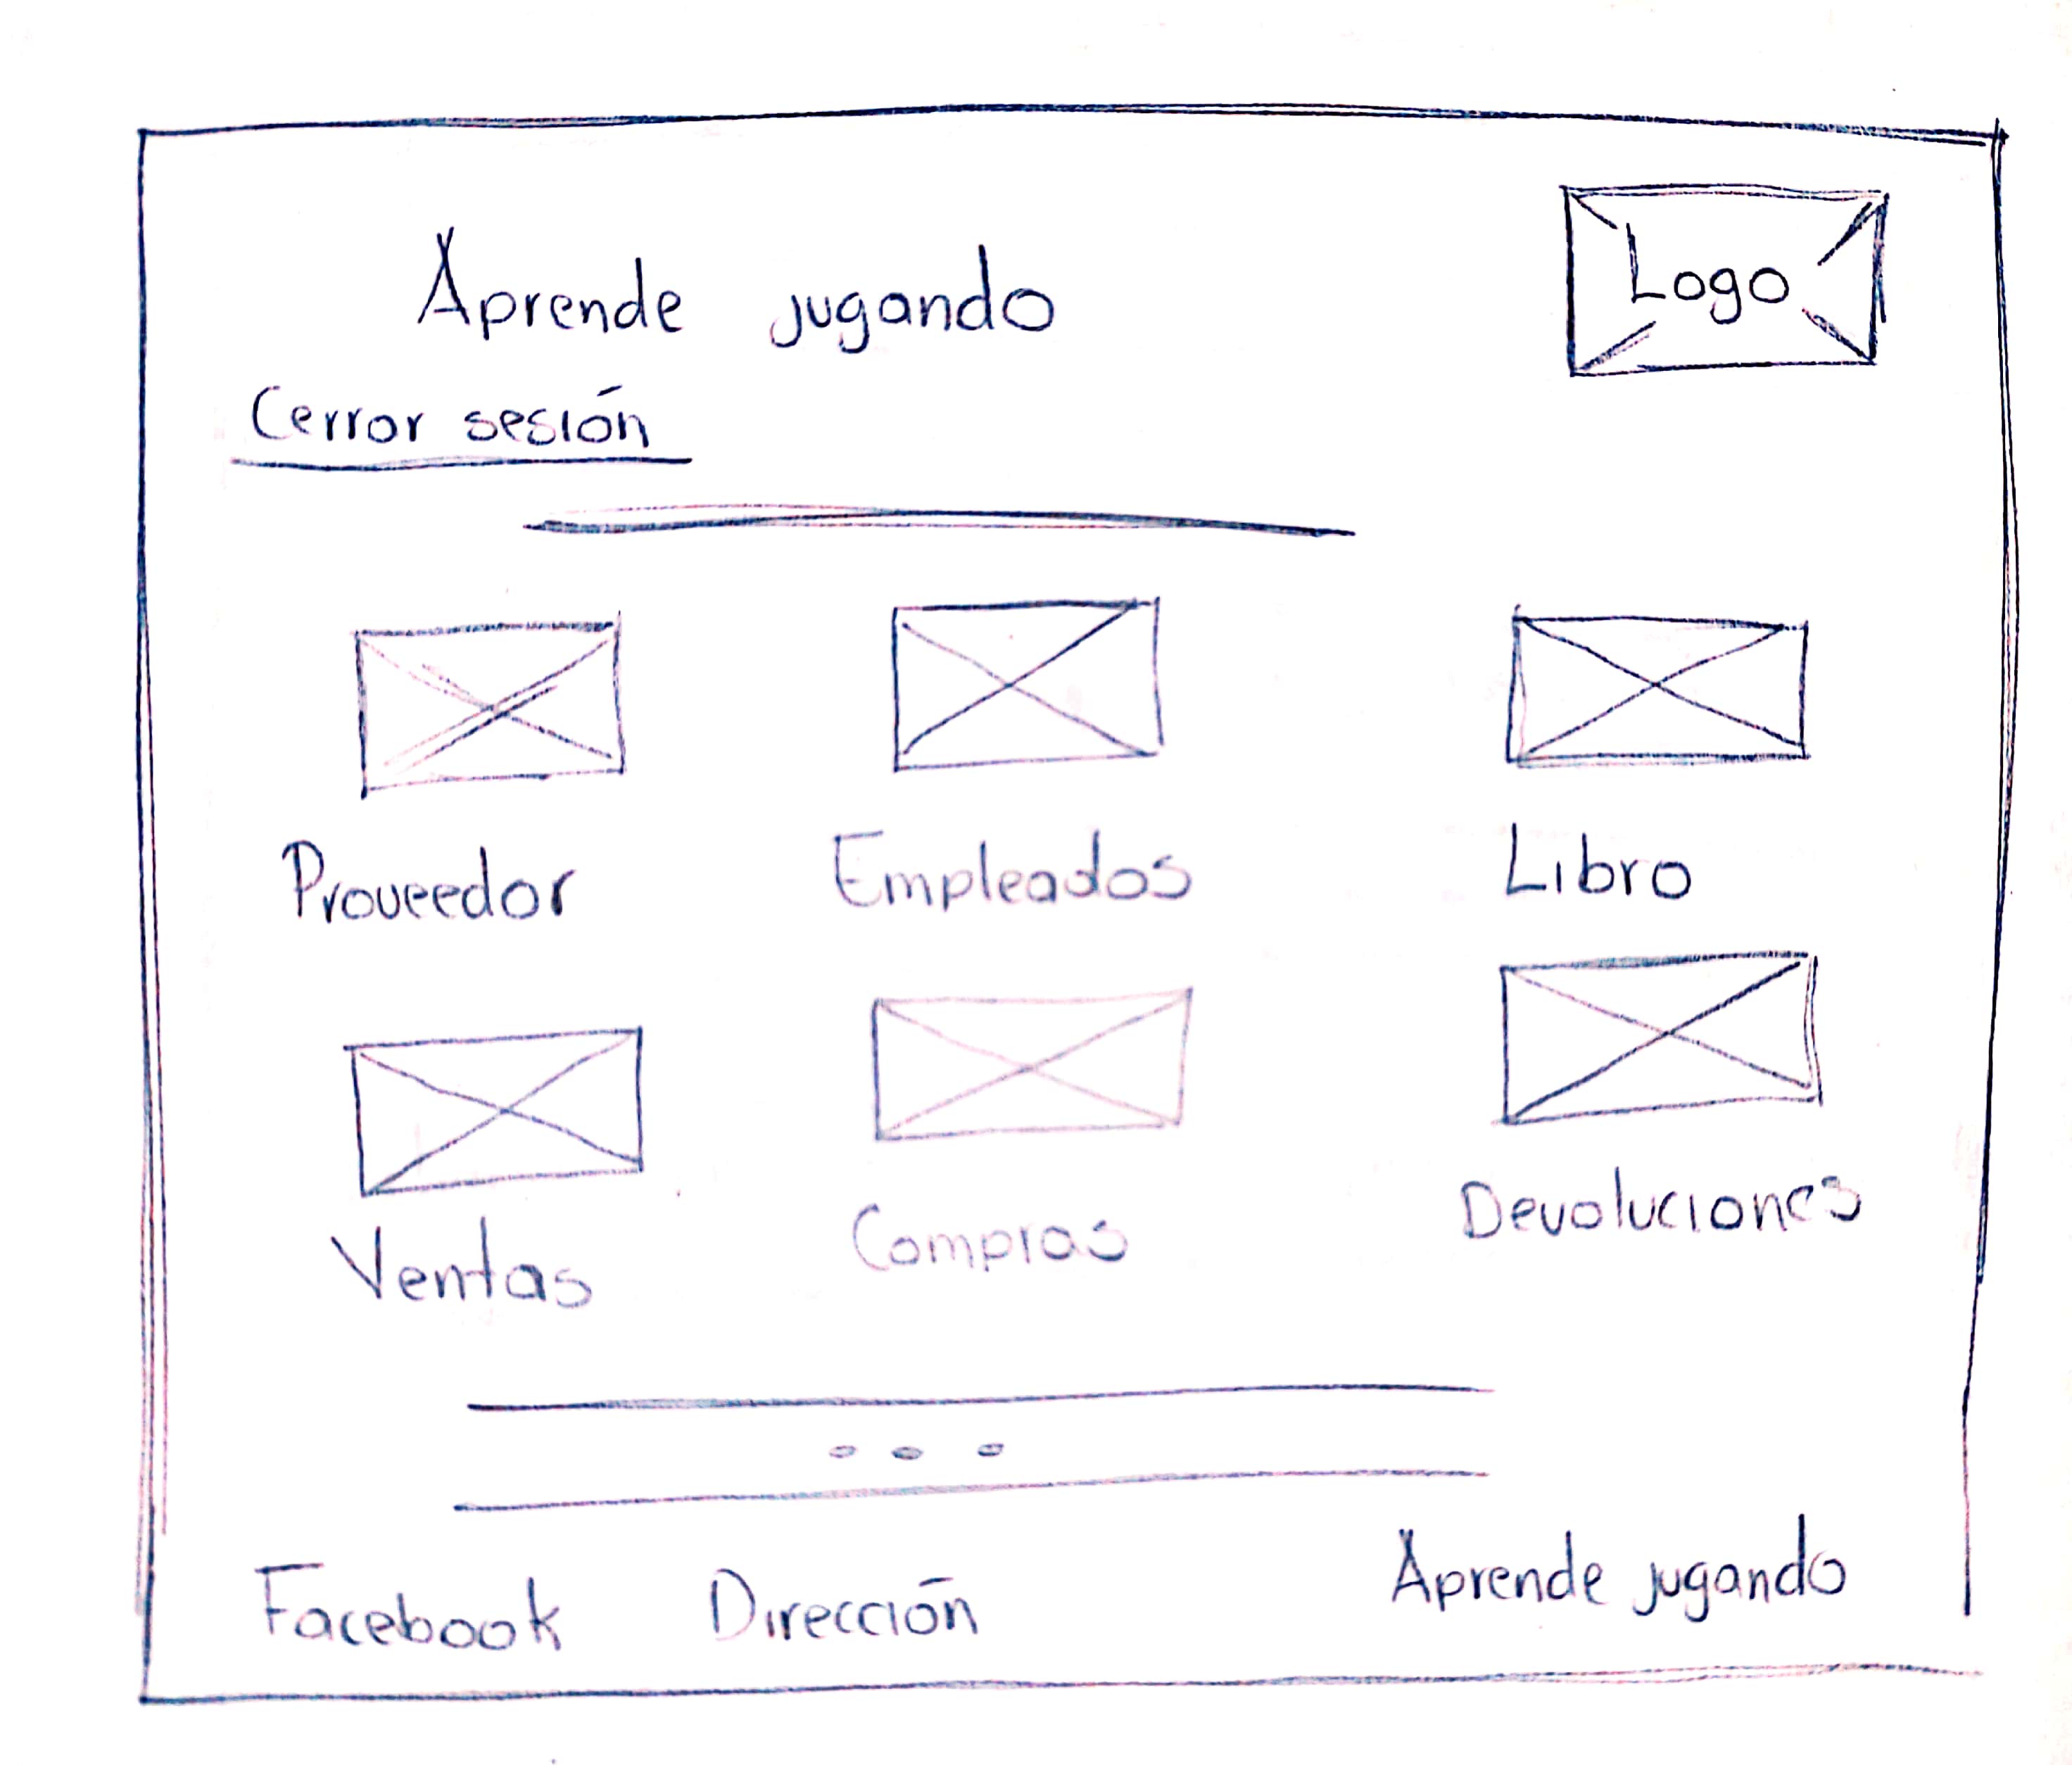 Aprende jugando
Logo
Cerror sesión
Proveedor Empleados Libro
Ventas Compras Devoluciones
Facebook Dirección Aprende jugando